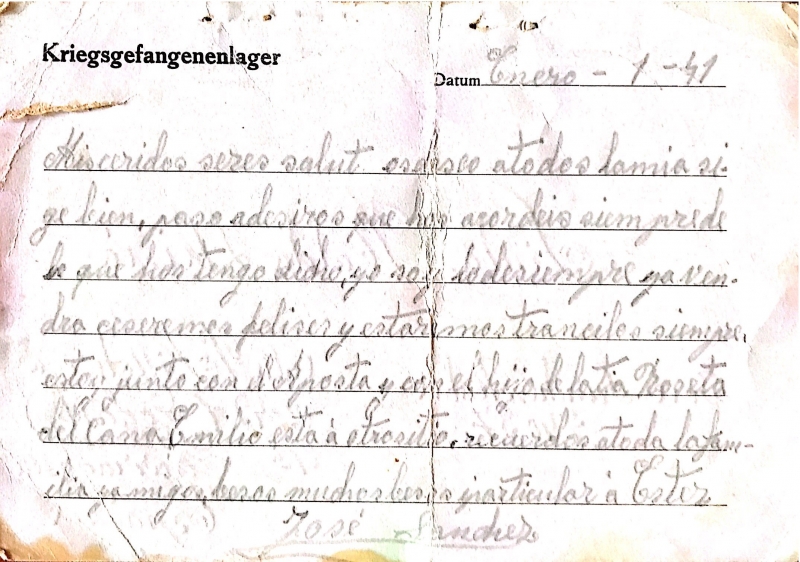 Kriegsgefangenenlager
Datum Enero - 1 - 41
Misceridos seres salut osdeseo atodos lamia si-
ge bien, paso adesiros que hos acordeis siemprede
lo que hos tengo dicho, yo soy lodesiempre ya ven-
dra ceseremos felises y estaremos tranciles siempre,
estoy junto con d'Aposta y con el hijo de latia Roseta
del Cana Emilio está à otrositio, recuerdos atoda lafam-
ilia yamigos, besos muchos besos particular à Ester
José Sanchez